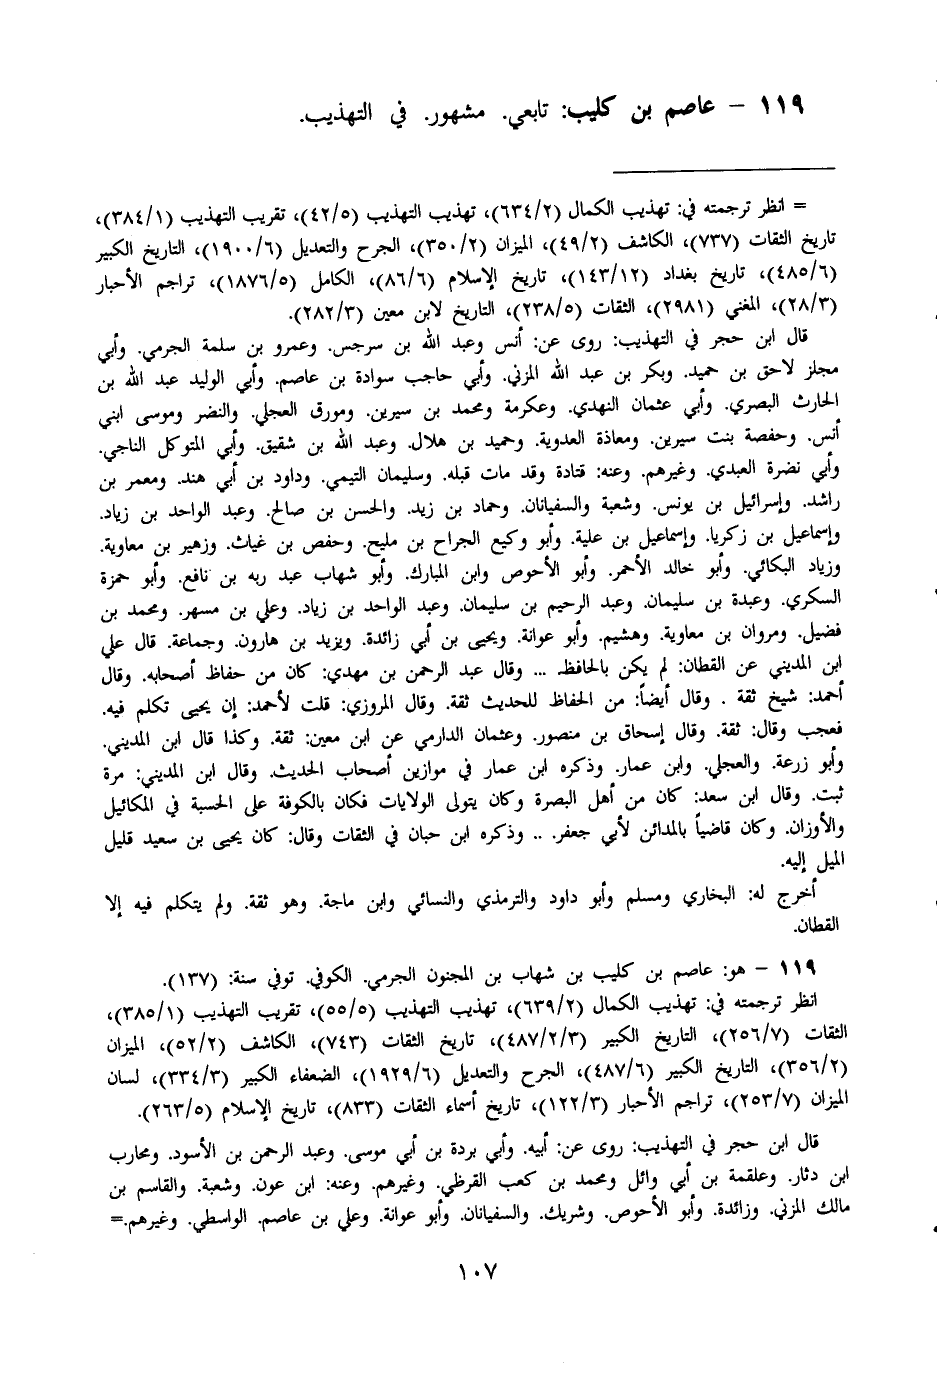 ١١٩ – عاصم بن كليب: تابعي. مشهور. في التهذيب.
= انظر ترجمته في: تهذيب الكمال (٦٣٤/٢)، تهذيب التهذيب (٤٢/٥)، تقريب التهذيب (٣٨٤/١)،
تاريخ الثقات (٧٣٧)، الكاشف (٤٩/٢)، الميزان (٣٥٠/٢)، الجرح والتعديل (١٩٠٠/٦)، التاريخ الكبير
(٤٨٥/٦)، تاريخ بغداد (١٤٣/١٢)، تاريخ الإسلام (٨٦/٦)، الكامل (١٨٧٦/٥)، تراجم الأحبار
(٢٨/٣)، المغني (٢٩٨١)، الثقات (٢٣٨/٥)، التاريخ لابن معين (٢٨٢/٣).
قال ابن حجر في التهذيب: روى عن: أنس وعبد الله بن سرجس. وعمرو بن سلمة الجرمي. وأبي
مجلز لاحق بن حميد. وبكر بن عبد الله المزني. وأبي حاجب سوادة بن عاصم. وأبي الوليد عبد الله بن
الحارث البصري. وأبي عثمان النهدي. وعكرمة ومحمد بن سيرين. ومورق العجلي. والنضر وموسى ابني
أنس. وحفصة بنت سيرين. ومعاذة العدوية. وحميد بن هلال. وعبد الله بن شقيق. وأبي المتوكل الناجي.
وأبي نضرة العبدي. وغيرهم. وعنه: قتادة وقد مات قبله. وسليمان التيمي. وداود بن أبي هند. ومعمر بن
راشد. وإسرائيل بن يونس. وشعبة والسفيانان. وحماد بن زيد. والحسن بن صالح. وعبد الواحد بن زياد.
وإسماعيل بن زكريا. وإسماعيل بن علية. وأبو وكيع الجراح بن مليح. وحفص بن غياث. وزهير بن معاوية.
وزياد البكائي. وأبو خالد الأحمر. وأبو الأحوص وابن المبارك. وأبو شهاب عبد ربه بن نافع. وأبو حمزة
السكري. وعبدة بن سليمان. وعبد الرحيم بن سليمان. وعبد الواحد بن زياد. وعلي بن مسهر. ومحمد بن
فضيل. ومروان بن معاوية. وهشيم. وأبو عوانة. ويحيى بن أبي زائدة. ويزيد بن هارون. وجماعة. قال علي
ابن المديني عن القطان: لم يكن بالحافظ ... وقال عبد الرحمن بن مهدي: كان من حفاظ أصحابه. وقال
أحمد: شيخ ثقة . وقال أيضاً: من الحفاظ للحديث ثقة. وقال المروزي: قلت لأحمد: إن يحيى تكلم فيه.
فعجب وقال: ثقة. وقال إسحاق بن منصور. وعثمان الدارمي عن ابن معين: ثقة. وكذا قال ابن المديني.
وأبو زرعة. والعجلي. وابن عمار. وذكره ابن عمار في موازين أصحاب الحديث. وقال ابن المديني: مرة
ثبت. وقال ابن سعد: كان من أهل البصرة وكان يتولى الولايات فكان بالكوفة على الحسبة في المكائيل
والأوزان. وكان قاضياً بالمدائن لأبي جعفر. .. وذكره ابن حبان في الثقات وقال: كان يحيى بن سعيد قليل
الميل إليه.
أخرج له: البخاري ومسلم وأبو داود والترمذي والنسائي وابن ماجة. وهو ثقة. ولم يتكلم فيه إلا
القطان.
١١٩ – هو: عاصم بن كليب بن شهاب بن المجنون الجرمي. الكوفي. توفي سنة: (١٣٧).
انظر ترجمته في: تهذيب الكمال (٦٣٩/٢)، تهذيب التهذيب (٥٥/٥)، تقريب التهذيب (٣٨٥/١)،
الثقات (٢٥٦/٧)، التاريخ الكبير (٤٨٧/٢/٣)، تاريخ الثقات (٧٤٣)، الكاشف (٥٢/٢)، الميزان
(٣٥٦/٢)، التاريخ الكبير (٤٨٧/٦)، الجرح والتعديل (١٩٢٩/٦)، الضعفاء الكبير (٣٣٤/٣)، لسان
الميزان (٢٥٣/٧)، تراجم الأحبار (١٢٢/٣)، تاريخ أسماء الثقات (٨٣٣)، تاريخ الإسلام (٢٦٣/٥).
قال ابن حجر في التهذيب: روى عن: أبيه. وأبي بردة بن أبي موسى. وعبد الرحمن بن الأسود. ومحارب
ابن دثار. وعلقمة بن أبي وائل ومحمد بن كعب القرظي. وغيرهم. وعنه: ابن عون. وشعبة. والقاسم بن
مالك المزني. وزائدة. وأبو الأحوص. وشريك. والسفيانان. وأبو عوانة. وعلي بن عاصم. الواسطي. وغيرهم.=
١٠٧